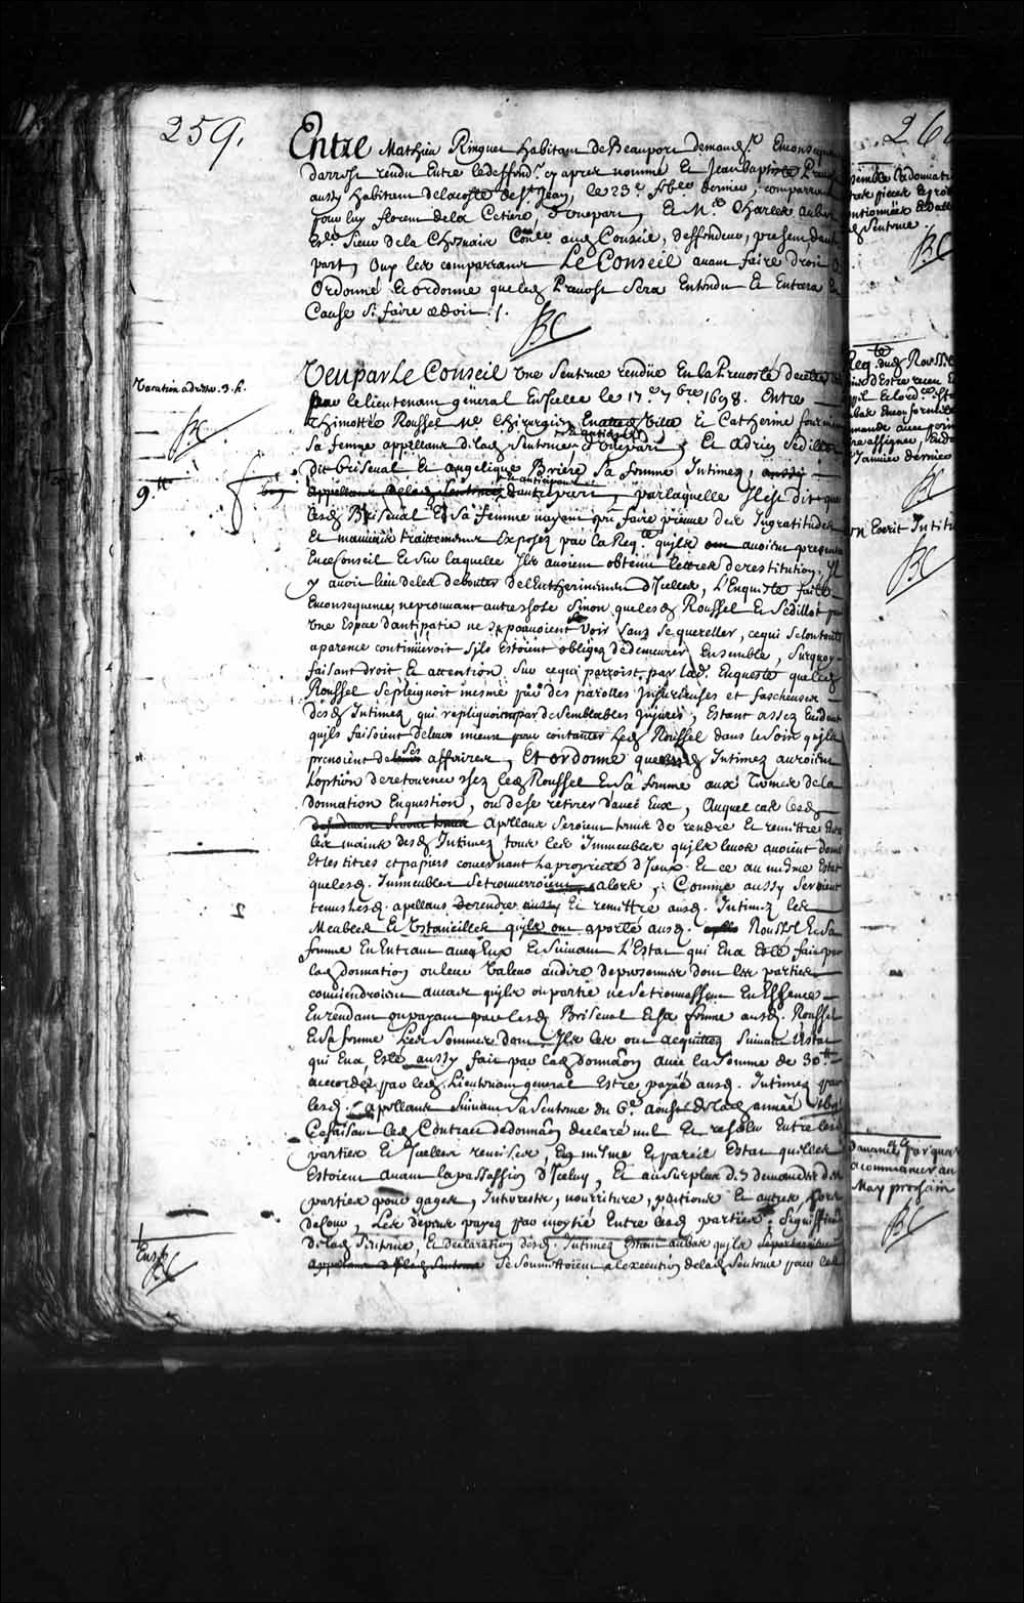 259.
Entre Mathieu Ringuet habitant de Beauport demandr. En consequence
darrest rendu Entre le deffendr. cy apres nommé Et Jean baptiste Prevost
aussy habitant de la coste de St. Jean, le 23e. xbre dernier, comparant
pour luy florent de la Cetiere, d'une part, Et Me. Charles Aubert
Esc. Sieur de la Chesnaie Coner. aud Conseil, deffendeur, present d'autre
part, Ouy les comparans Le Conseil avant faire droit a
Ordonné Et ordonne que led Prevost sera Entendu Et Entrera En
Cause Sy faire se doit ./.
BC
Vacation adress. 3. h.
BC
9.tt
Veu par Le Conseil une Sentence rendüe En la Prevosté de cette
par le lieutenant general En Icelle le 17e. 7bre 1698. Entre
Thimottée Roussel Me Chirurgien En cette ville Et Catherine fournier
Sa femme appellans de lad Sentence, d'une part, Et Adrien Sedillot
dit briseval Et angelique Briere Sa femme Intimez,
d'autre part, par laquelle Il est dit que
lesd Briseval Et Sa femme n'ayant pu faire preuve des Ingratitudes
Et mauvais traittemens Exposez par la Reqte. qu'ils avoient presenté
En ce Conseil Et sur laquelle Ils avoient obtenu lettres de restitution, Il
y avoit lieu de les debouter de l'Entherinement d'Icelles, L'Enqueste faite
En consequence, ne prouvant autre chose Sinon que lesd Roussel Et Sedillot par
Une Espece d'antipatie ne se pouvoient Voir Sans se quereller, ce qui selon toute
aparence continüeroit S'ils Estoient obligez de demeurer Ensemble, Surquoy
faisant droit Et attention Sur ce qui parroist par lad. Enqueste que led
Roussel se pleignoit mesme par des parolles Injurieuses et fascheuses
desd Intimez, qui repliquoient par de Semblables Injures, Estant assez Evident
qu'ils faisoient de leur mieux pour contanter led Roussel dans le Soin qu'ils
prenoient de ses affaires, Et ordonné que lesd Intimez auroient
L'option de retourner chez led Roussel Et Sa femme aux Termes de la
donnation En question, ou de se retirer d'avec Eux, Auquel cas lesd
apellans Seroient tenus de rendre Et remettre Es
les mains desd Intimez tous les Immeubles qu'ils leurs avoient donné
Et les titres et papiers concernant la proprieté d'Iceux. Et ce au mesme Estat
que lesd. Immeubles Se trouveroient alors, Comme aussy Seroient
tenus lesd. apellans de rendre Et remettre ausd. Intimez les
Meubles Et Ustancilles qu'ils ont aporté ausd. Roussel Et Sa
femme En Entrant avec Eux Et Suivant L'Estat qui En a Esté fait par
lad donnation ou leur Valeur au dire de personnes dont les parties
conviendroient au cas qu'ils ou partie ne Se trouvassent En Essence
En rendant ou payant par lesd Briseval Et Sa femme ausd. Roussel
Et Sa femme Les Sommes dont Ils les ont acquittez Suivant L'Estat
qui En a Esté aussy fait par lad donnaôn avec la Somme de 30tt
accordée par led. Lieutenant general Estre payée ausd. Intimez par
lesd. apellans Suivant Sa Sentence du 6e. aoust de lad année
Ce faisant led Contract de donnaôn declaré nul Et resolu Entre lesd
parties Et Icelles remises En mesme Et pareil Estat qu'elles
Estoient avant la passassion d'Iceluy, Et au surplus des demandes des
parties pour gages, Interrests, nourriture, pentions Et autres hors
de Cour, Les depens payez par moytié Entre lesd parties; Signiffiée
de lad Sentence, Et declaration desd. Intimez
Se Soumettoient a l'execution de lad Sentence pour les
BC
260
BC
Reqte. dud Roussel
BC
BC
a commancer au
May prochain
BC